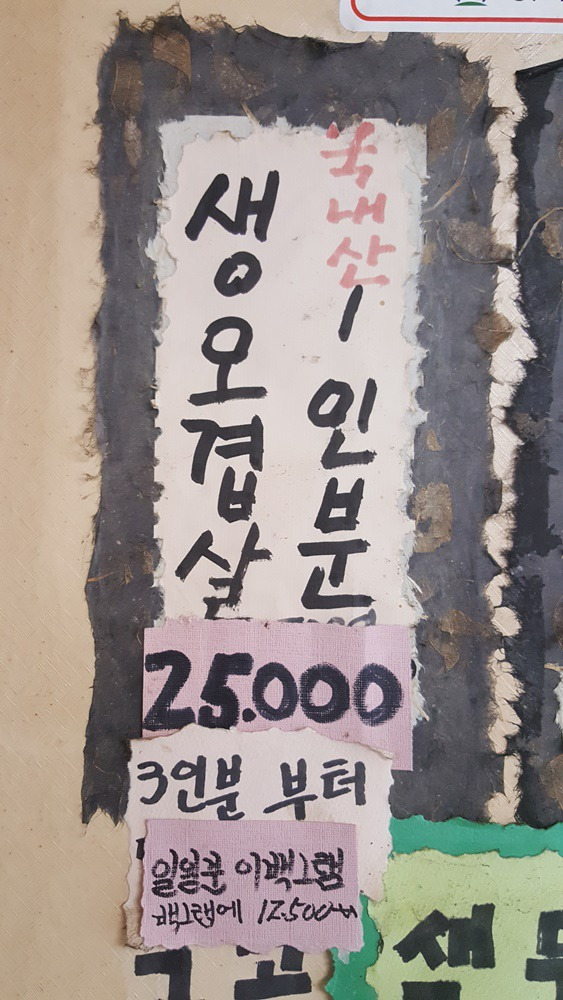 국내산
1인분
생오겹살
25.000
3인분 부터
일인분 이백그램
백그램에 12.500